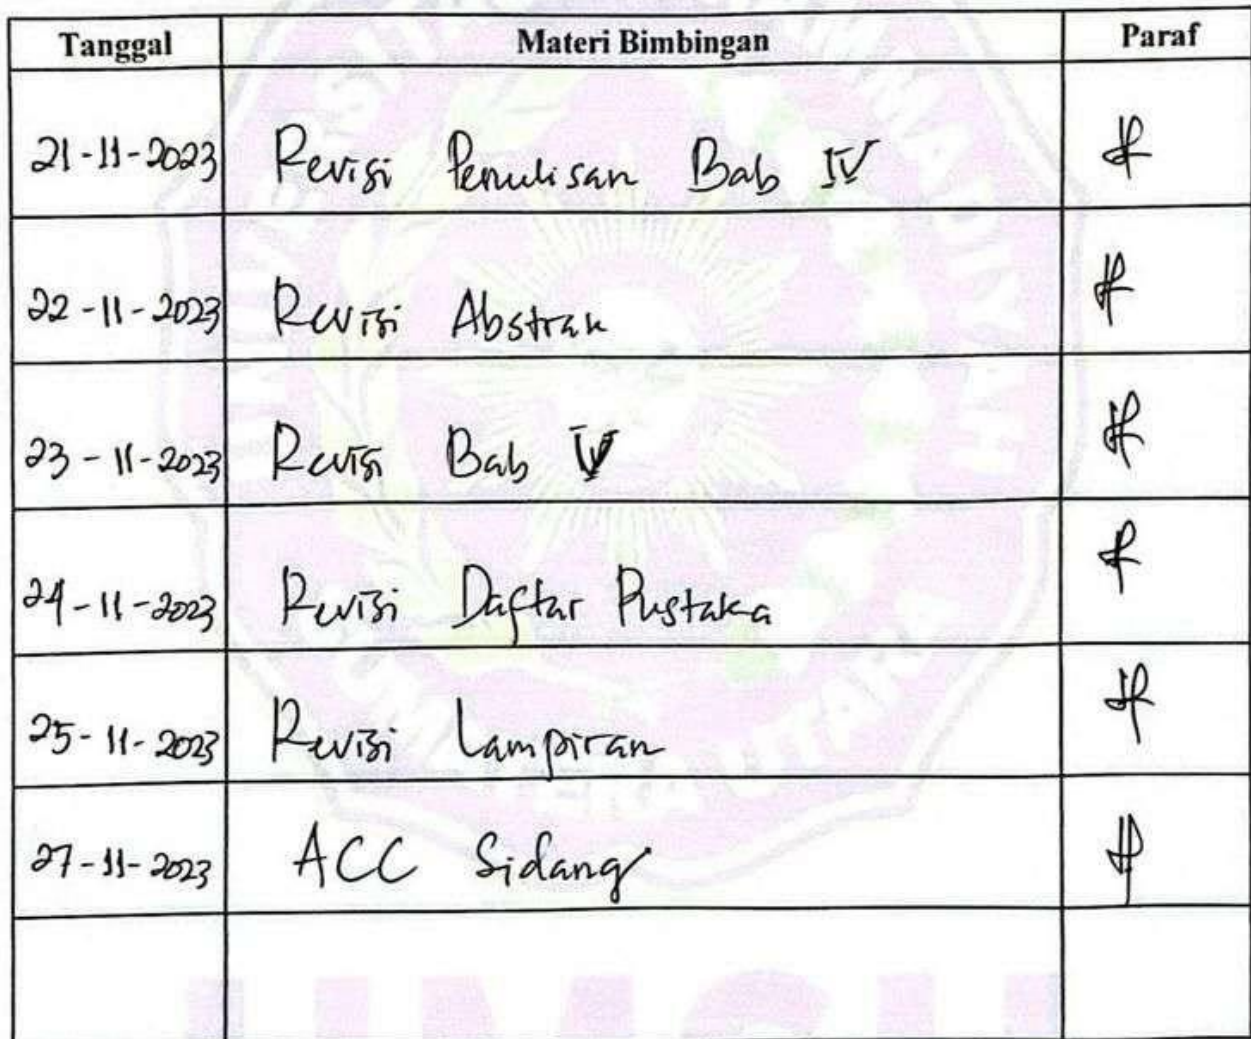 Tanggal Materi Bimbingan Paraf
21-11-2023 Revisi Penulisan Bab IV
22-11-2023 Revisi Abstrak
23-11-2023 Revisi Bab
24-11-2023 Revisi Daftar Pustaka
25-11-2023 Revisi Lampiran
27-11-2023 ACC Sidang
UMSU